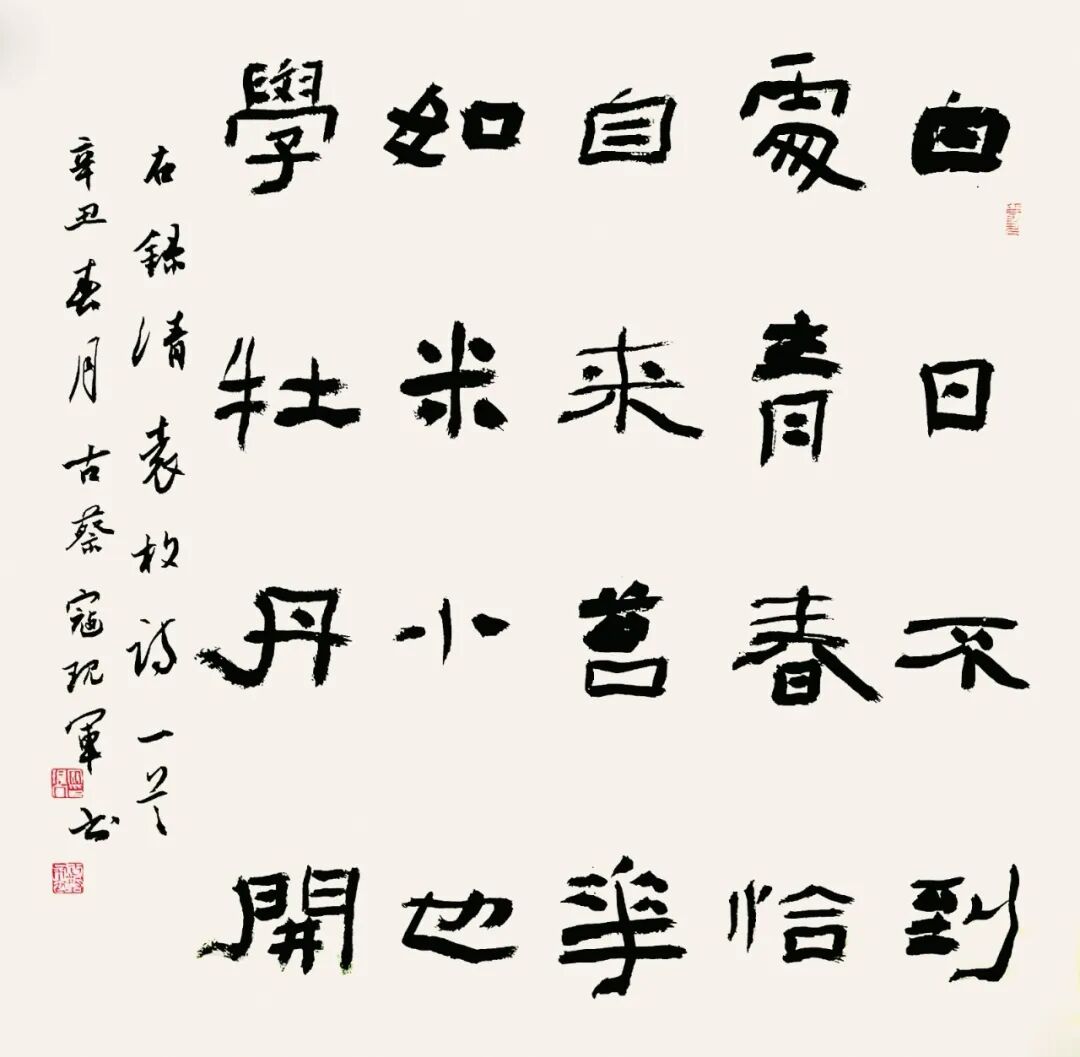 白日不到
處青春恰
自来苔華
如米小也
學牡丹開
右録清袁枚詩一首
辛丑春月古蔡寇现軍书